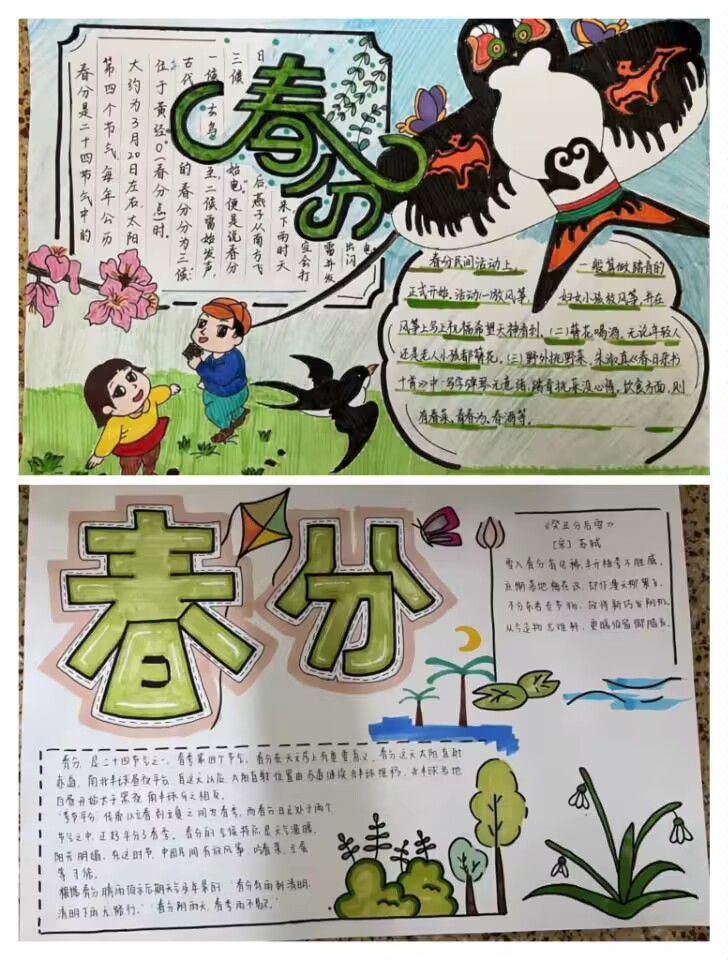 春分
春分是二十四节气中的
第四个节气,每年公历
大约为3月20日左右,太阳
位于黄经0°(春分点)时.
古代 的春分分为三候:
一候 鸟 至,二候雷始发声,
三候 始电,"便是说春分
日 后,燕子从南方飞
来,下雨时天
空会打
雷并发
出闪
电
春分民间活动上, 一般算做踏青的
正式开始,活动(一)放风筝, 妇女小孩放风筝,并在
风筝上写上祝福希望天神看到,(二)簪花喝酒,无论年轻人
还是老人小孩都簪花。(三)野外挑野菜,朱淑真《春日杂书
十首》中:写字弹琴无意绪,踏青挑菜没心情。饮食方面,则
有春菜,春汤,春酒等。
春分
[宋] 苏轼
雪入春分省见稀,半开桃李不胜威
应惭落地梅花识,却作漫天柳絮飞
不分东君专节物,故将新巧发阴机
从今造物尤难料,更暖须留御腊衣
春分,是二十四节气之一,春季第四个节气。春分在天文学上有重要意义,春分这天太阳直射
赤道,南北半球昼夜平分,自这天以后,太阳直射位置由赤道继续北半球推移,北半球各地
白昼开始大于黑夜,南半球与之相反。
季节平分,传统以立春到立夏之间为春季,而春分日正处于两个
节气之中,正好平分了春季。春分的气候特点是天气温暖,
阳光明媚,在这时节,中国民间有放风筝,吃春菜,立蛋
等习俗。
根据春分晴雨预示后期天气与年景的:"春分有雨到清明,
清明下雨无路行。""春分阴雨天,春季雨不歇。"